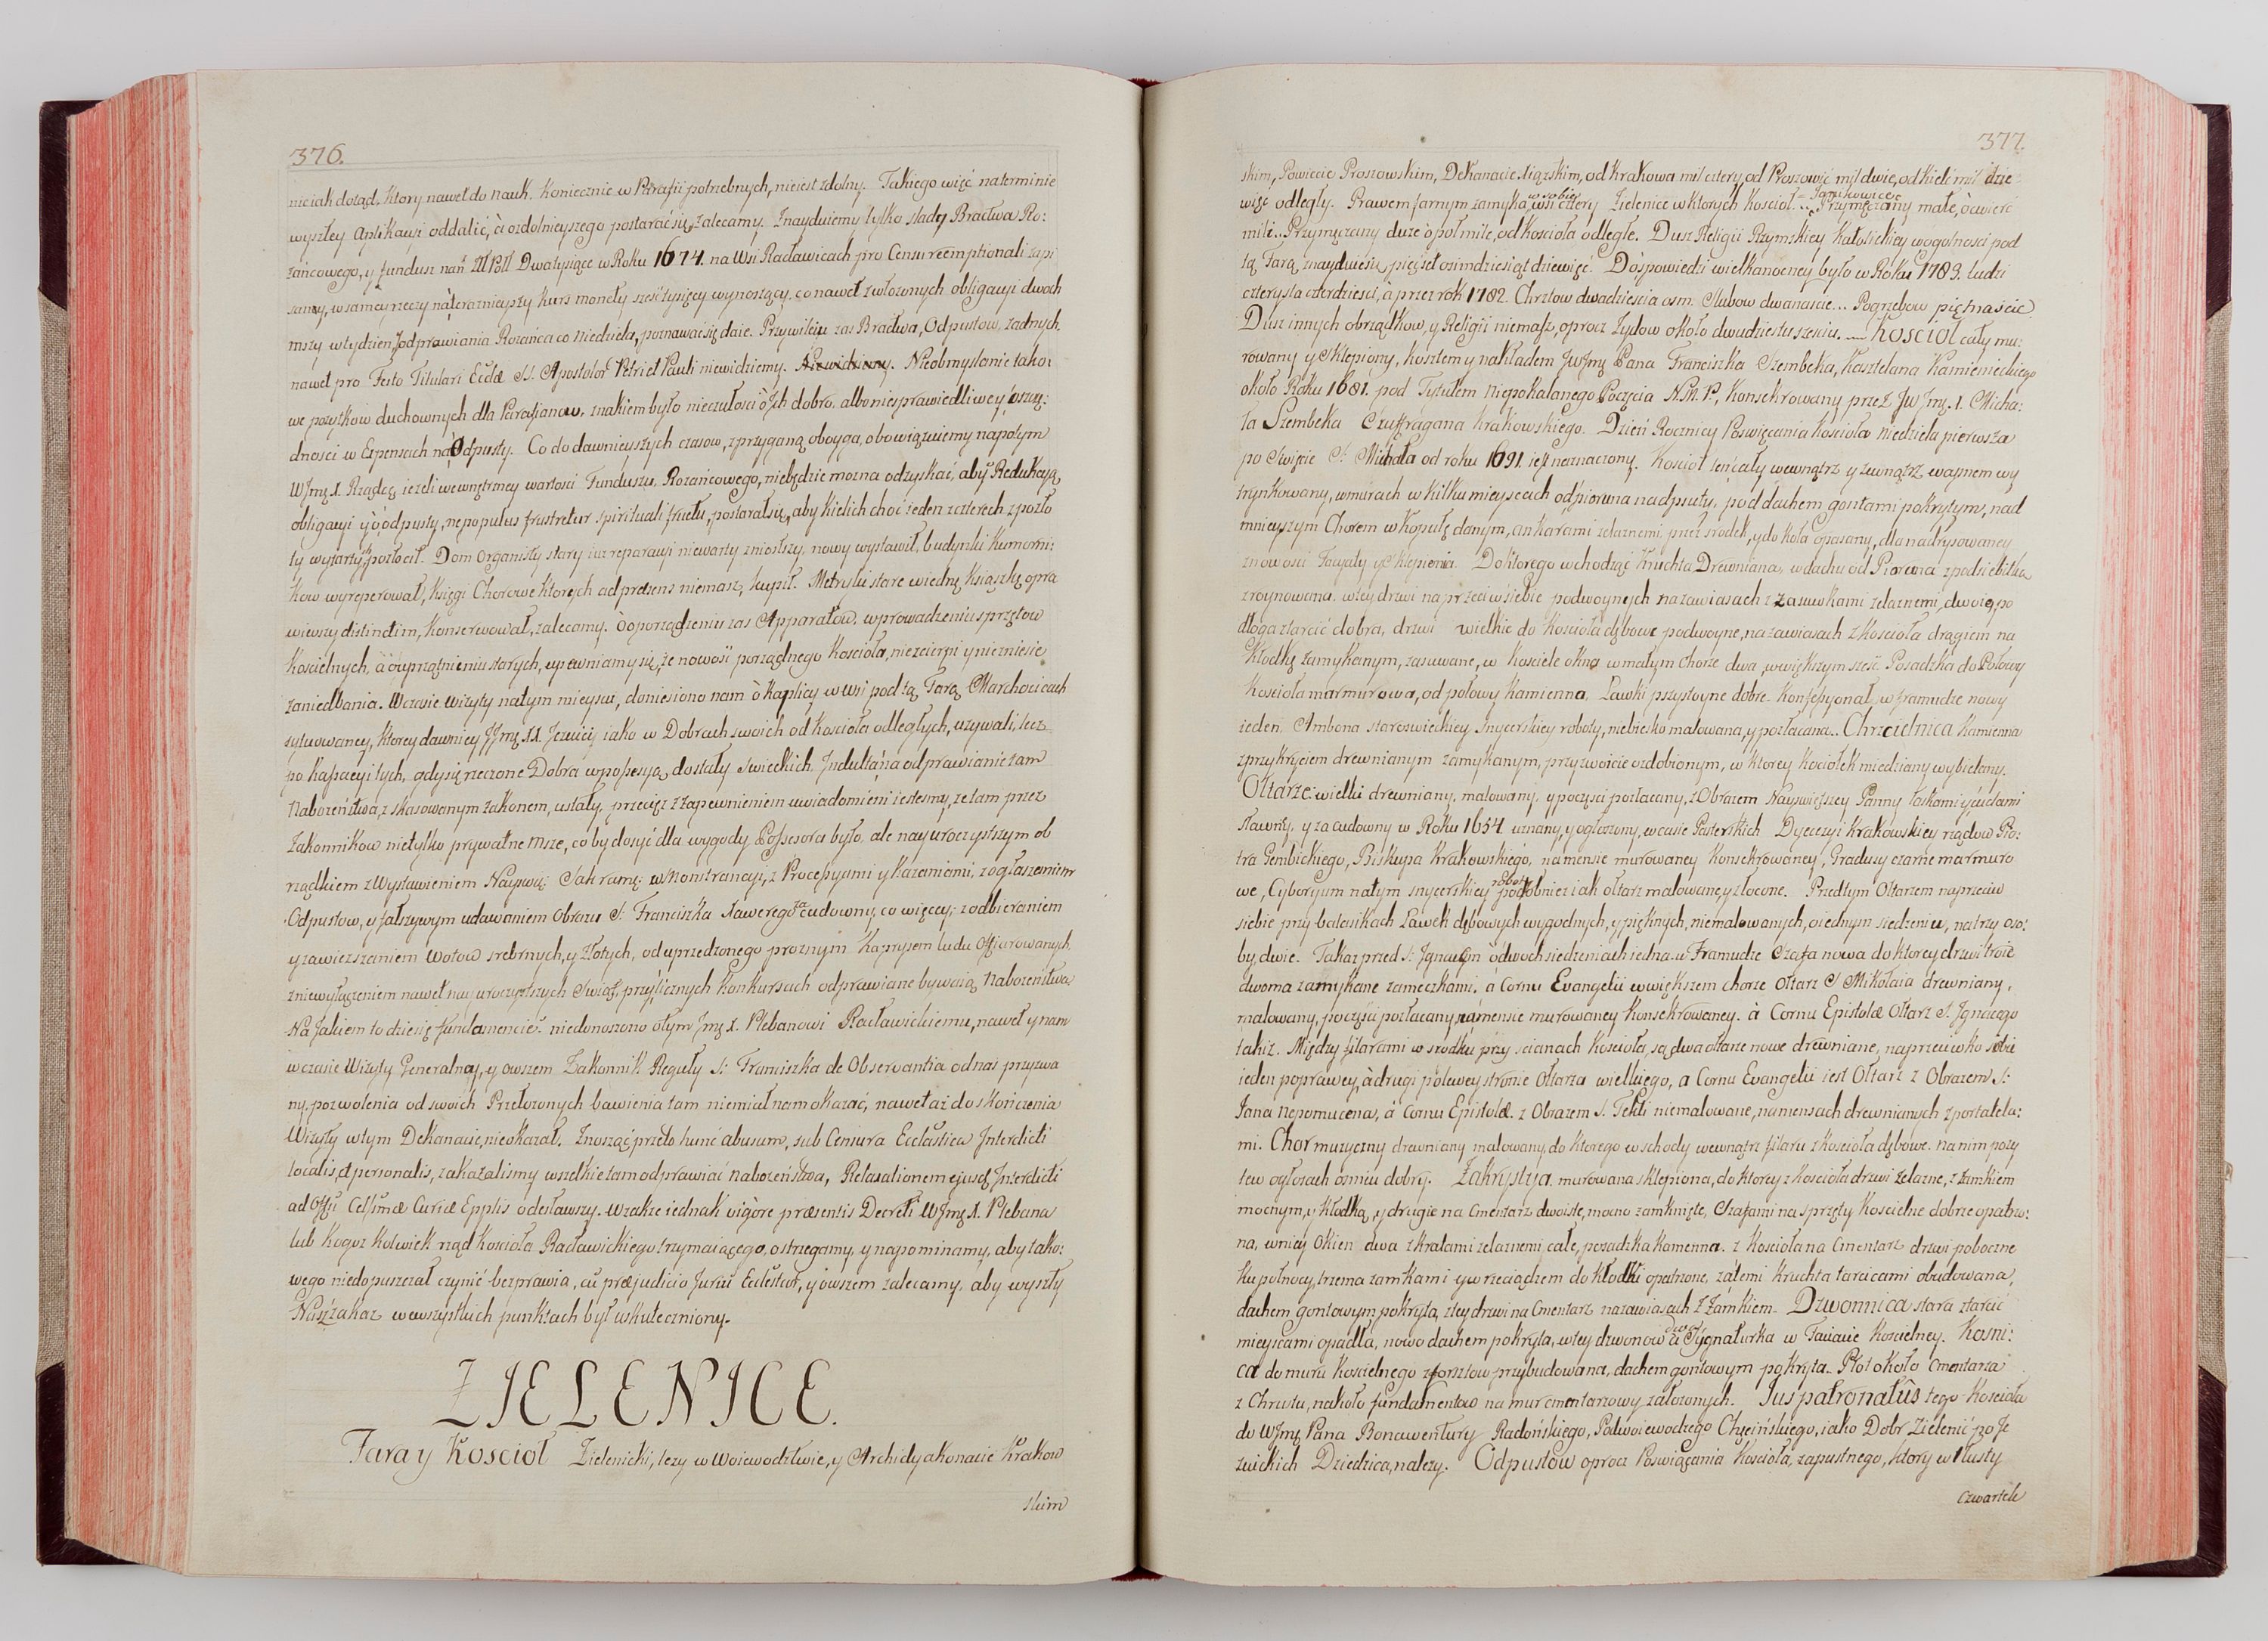 376.
nieiak dotąd, ktory nawet do nauk koniecznie w Parafii potrzebnych, nieiest zdolny. Takiego więć na terminie
wyszłey Aplikacyi oddalić, à o zdolnieyszego postarać się, zalecamy. Znayduiemy tylko slady Bractwa Ro:
żańcowego, y fundusz nań Dwatysiące w Roku 1674. na Wsi Racławicach pro Censu reemptionali zapi
sany, w samey rzeczy na teraznieyszy kurs monety sześćtysięcy wynoszący, co nawet z włożonych obligacyi dwoch
mszy w tydzień, y odprawiania Rożańca co Niedziela, poznawać się daie. Przywileiu zas Bractwa, Odpustow, żadnych,
nawet pro Festo Titulari Eccłæ SS. Apostolor Petri et Pauli niewidziemy. Nieobmyslanie tako:
we pożytkow duchownych dla Parafianow, znakiem było nieczułosci o Jch dobro, albo niesprawiedliwey oszczę:
dnosci w Expensach na Odpusty. Co do dawnieyszych czasow, z przyganą oboyga, obowiązuiemy napotym
WJmę X. Rządcę, ieżeli wewnętrzney wartosci Funduszu Rożańcowego, niebędzie można odzyskać, aby o Redukcyą
obligacyi y o odpusty, ne populus frustretur spirituali fructu, postarał się, aby kielich choć ieden z czterech z pozło
ty wytarty pozłocił. Dom Organisty stary iuż reparacyi niewarty zniosłszy, nowy wystawił, budynki Kumorni:
kow wyreperował, Księgi Chorowe ktorych ad præsens niemasz, kupił. Metryki stare w iednę Książkę opra
wiwszy distinctim, konserwował, zalecamy. O oporządzeniu zas Apparatow, wprowadzeniu sprzętow
Koscielnych, à o uprzątnieniu starych, upewniamy się, że nowość porządnego Kościoła, niezcierpi y niezniesie
zaniedbania. W czasie Wizyty na tym mieyscu, doniesiono nam o Kaplicy w Wsi pod tą Farą Marchocicach
sytuowaney, ktorey dawniey JJmę XX. Jezuici iako w Dobrach swoich od Kościoła odległych, używali, lecz
po Kassacyi tych, gdy się rzeczone Dobra w possesyą dostały Swieckich, Jndulta na odprawianie tam
Nabożeństwa, z skasowanym zakonem, ustały, przecięż z zapewnieniem uwiadomieni iestesmy, że tam przez
Zakonnikow nietylko prywatne Msze, co by dosyć dla wygody Possesora było, ale nayuroczystszym ob
rządkiem z Wystawieniem Nayswię: Sakramę: w Monstrancyi, z Processyami y Kazaniami, z ogłaszaniem
Odpustow, y fałszywym udawaniem Obrazu S: Franciszka Xawerego za cudowny, co więcey, z odbieraniem
y zawieszaniem Wotow srebrnych, y złotych, od uprzedzonego prożnym Kaprysem ludu offiarowanych,
z niewyłączeniem nawet nayuroczystszych Swiąt, przy licznych Konkursach odprawiane bywaią Nabożeństwa.
Na jakiem to dzieie się fundamencie? niedonoszono o tym Jmę X. Plebanowi Racławickiemu, nawet y nam
w czasie Wizyty Generalney, y owszem Zakonnik Reguły S: Franciszka de Observantia od nas przyzwa
ny, pozwolenia od swoich Przełożonych bawienia tam niemiał nam okazać, nawet aż do skończenia
Wizyty w tym Dekanacie, nieokazał. Znosząc przeto hunc abusum, sub Censura Ecclastica Jnterdicti
localis, et personalis, zakazalismy wszelkie tam odprawiać nabożeństwa, Relaxationem ejusq Jnterdicti
ad Offu Celssimæ Curiæ Epplis odesławszy. Wszakże iednak vigore præsentis Decreti WJmę X. Plebana
lub kogoż kolwiek rząd Kościoła Racławickiego trzymaiącego, ostrzegamy, y napominamy, aby tako:
wego niedopuszczał czynić bezprawia, cu præjudicio Juriu Ecclestar, y owszem zalecamy, aby wyszły
Nasz zakaz w wszystkich punktach był uskuteczniony.
ZIELENICE.
Fara y Kosciół Zielenicki, leży w Woiewodztwie, y Archidyakonacie Krakow
skim
377.
skim, Powiecie Proszowskim, Dekanacie Xiązskim, od Krakowa mil cztery, od Proszowic mil dwie, od Kielc mil dzie
więć odległy. Prawem farnym zamyka w sobie wsi cztery Zielenice w ktorych Kościoł... Janikowice Przymęczany małe, o ćwierć
mili.. Przymęczany duże o poł mile, od Kościoła odległe. Dusz Religii Rzymskiey Katolickiey w ogolności pod
tą Farą znayduie się pięćset osimdziesiąt dziewięć. Do spowiedzi wielkanocney było w Roku 1783. ludzi
czterysta czterdzieści, à przez rok 1782. Chrztow dwadzieścia osm. Slubow dwanascie... Pogrzebow piętnaście.
Dusz innych obrządkow, y Religii niemasz, oprocz Żydow około dwudziestu sześciu. — Kościoł cały mu:
rowany y sklepiony, kosztem y nakładem JWJmę Pana Franciszka Szembeka, Kasztelana Kamienieckiego
około Roku 1681. pod Tytułem Niepokalanego Poczęcia N.M.P., Konsekrowany przez JWJmę. X. Micha:
ła Szembeka Suffragana Krakowskiego. Dzień Rocznicy Poswięcania Kościoła niedziela pierwsza
po Swięcie S. Michała od roku 1691. iest naznaczony. Kościoł ten cały wewnątrz y zewnątrz wapnem wy
trynkowany, w murach w kilku mieyscach od pioruna nadpsuty, pod dachem gontami pokrytym, nad
mnieyszym Chorem w Kopułę danym, ankarami żelaznemi przez srodek, y do koła opasany, dla nadrysowaney
znowości Facyaty y sklepienia. Do ktorego wchodząc Kruchta Drewniana, w dachu od Piorona z podsiebitką
zroynowana, w tey drzwi naprzeciw siebie podwoynych na zawiasach z zasuwkami żelaznemi, dwoie, po
dłoga z tarcic dobra, drzwi wielkie do Kościoła dębowe podwoyne, na zawiasach z Kościoła drągiem na
kłodkę zamykanym, zasuwane, w Kościele okna w małym chorze dwa, w większym sześć. Posadzka do Połowy
Kościoła marmurowa, od połowy kamienna. Ławki przystoyne dobre. Konfessyonał w framudze nowy
ieden. Ambona staroswieckiey snycerskiey roboty, niebiesko malowana, y pozłacana.. Chrzcielnica kamienna
z przykryciem drewnianym zamykanym, przyzwoicie ozdobionym, w ktorey kociołek miedziany wybielany.
Ołtarze: wielki drewniany, malowany, y poczęści pozłacany, z Obrazem Nayswięszey Panny łaskami y cudami
sławny, y za cudowny w Roku 1654 uznany, y ogłoszony, w czasie Pasterskich Dyecezyi Krakowskiey rządow Pio:
tra Gembickiego, Biskupa Krakowskiego, na mensie murowaney konsekrowaney, Gradusy czarne marmuro
we, Cyboryum na tym snycerskiey roboty podobnież iak ołtarz malowane, y złocone. Przed tym Ołtarzem naprzeciw
siebie przy balasikach Ławek dębowych wygodnych, y pięknych, niemalowanych, o iednym siedzeniu, na trzy oso:
by, dwie. Takaż przed S: Ignacym o dwoch siedzeniach iedna. w Framudze Szafa nowa do ktorey drzwi troie
dwoma zamykane zameczkami. à Cornu Evangelii w większem chorze Ołtarz S Mikołaia drewniany,
malowany, poczęści pozłacany, na mensie murowaney konsekrowaney. à Cornu Epistolæ Ołtarz S Jgnacego
takiż. Między filarami w srodku przy scianach Kościoła, są dwa ołtarze nowe drewniane, naprzeciwko siebie
ieden po prawey, à drugi po lewey stronie Ołtarza wielkiego, a Cornu Evangelii iest Ołtarz z Obrazem S:
Jana Nepomucena, à Cornu Epistolæ z Obrazem S. Tekli niemalowane, na mensach drewnianych z portatela:
mi. Chor muzyczny drewniany malowany, do ktorego wschody wewnątrz filaru z Kościoła dębowe. na nim pozy
tew o głosach osmiu dobry. Zakrystya murowana sklepiona, do ktorey z Kościoła drzwi żelazne, z zamkiem
mocnym, y kłodką, y drugie na Cmentarz dwoiste, mocno zamknięte, Szafami na sprzęty Kościelne dobrze opatrzo:
na, w niey okien dwa z kratami żelaznemi, całe, posadzka kamenna. z Kościoła na Cmentarz drzwi poboczne
ku połnocy, trzema zamkami y wrzeciądzem do kłodki opatrzone, za temi kruchta tarcicami obudowana,
dachem gontowym pokryta, z tey drzwi na Cmentarz na zawiasach z zamkiem. Dzwonnica stara z tarcic
mieyscami opadła, nowo dachem pokryta, w tey dzwonow dwa à Sygnaturka w Faciacie Kościelney. Kosni:
ca do muru Kościelnego z forsztow przybudowana, dachem gontowym pokryta.. Płot około Cmentarza
z Chrustu, nakoło fundamentow na mur cmentarzowy założonych. Jus patronatûs tego Kościoła
do WJmę Pana Bonawentury Radońskiego, Podwoiewodzego Chęcińskiego, iako Dobr Zielenic po Je
zuickich Dziedzica, należy. Odpustow oprocz Poswiącania Kościoła, zapustnego, ktory w tłusty
czwartek